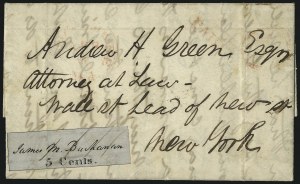 Andrew H Green Esqr
Attorney at Law -
Wall st head of New st
New York
James M. Buchanan
5 Cents.